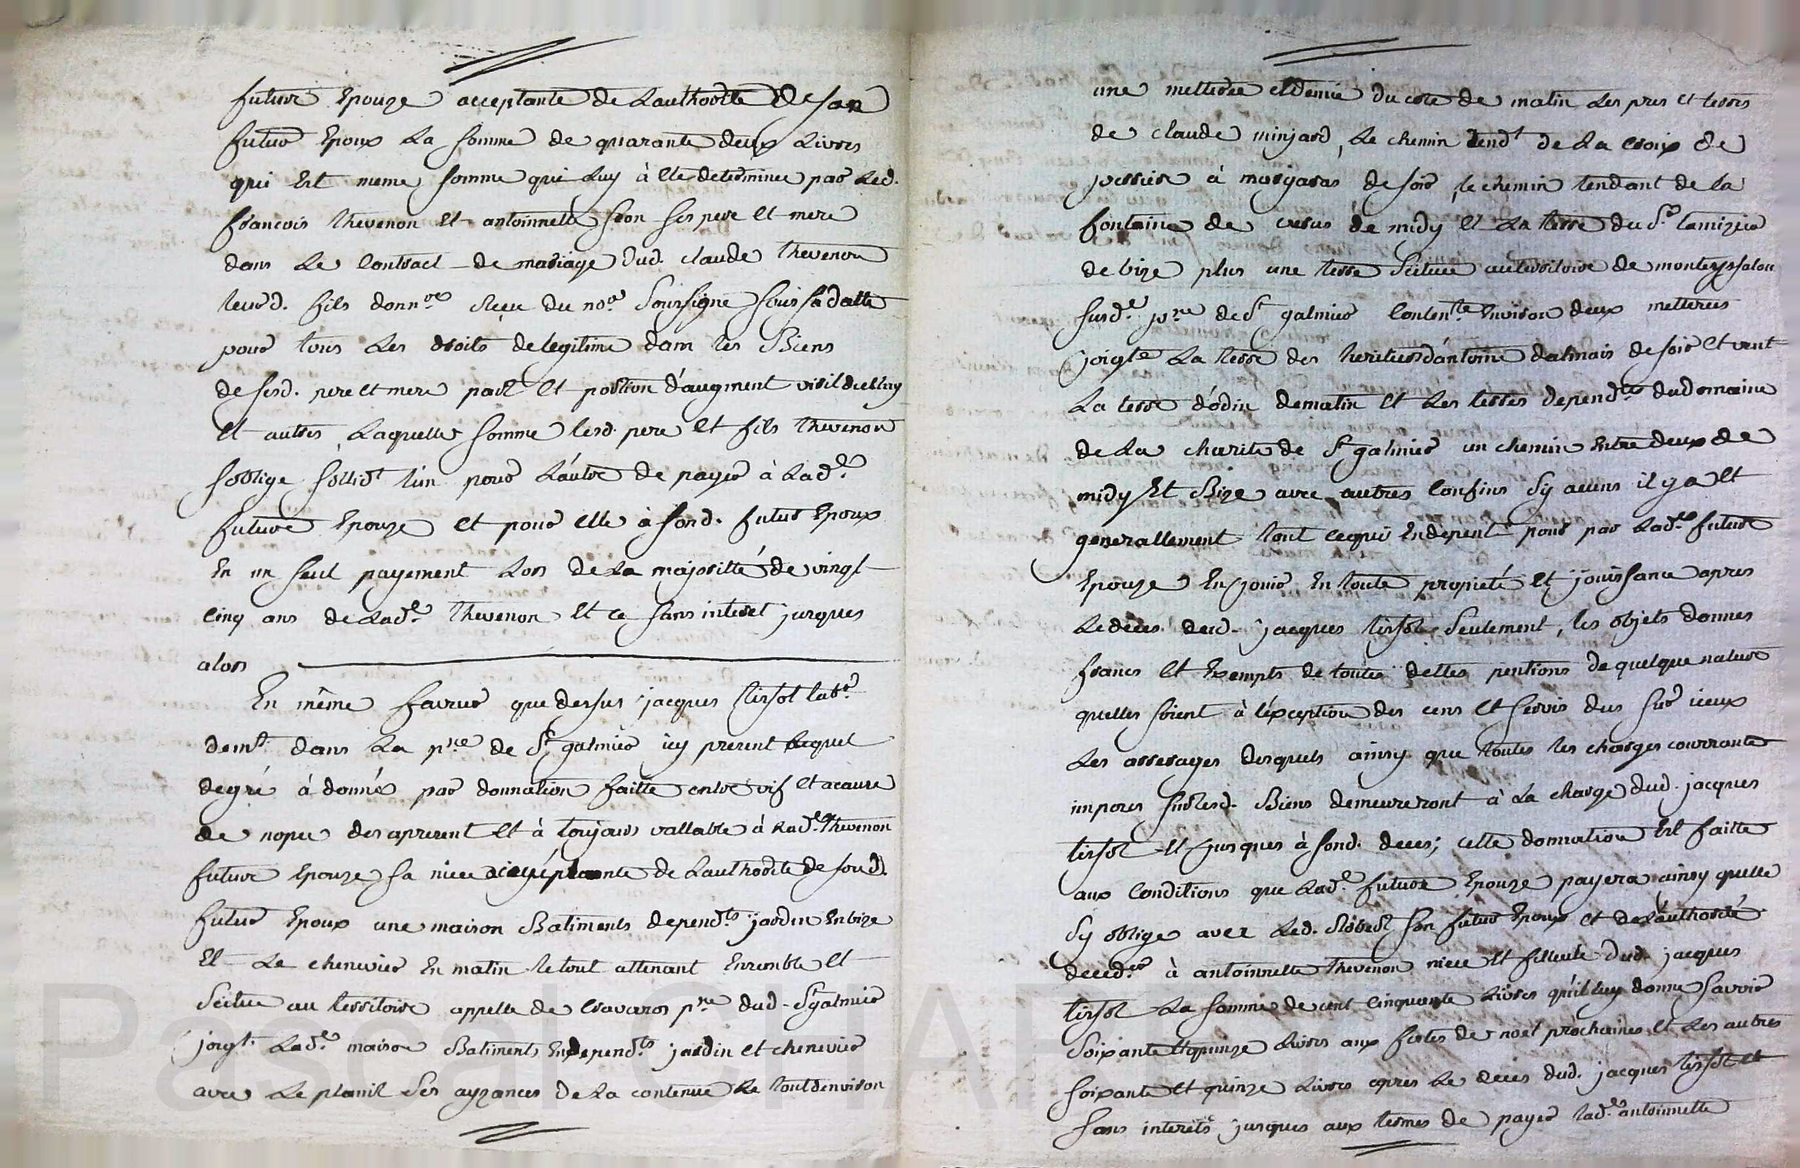 future Epouze acceptante de Lauthorité de son
futur Epoux La somme de quarante deux Livres
qui Est meme somme qui Luy à Eté determinée par Led.
francois thevenon Et antoinnette ses pere Et mere
dans Le Contract de mariage dud. claude thevenon
leurd. fils donnre Reçu du nore Soussigné sous sa datte
pour tous Les droits de légitime dans les Biens
de sesd. pere et mere part Et portion d'augment viril dicelluy
Et autres Laquelle somme lesd. pere Et fils thevenon
soblige sollidt l'un pour Lautre de payer à Lade
future Epouze Et pour Elle à sond. futur Epoux
En un seul payement Lors de La majorité de vingt
Cinq ans de Lade thevenon Et ce sans interet jusques
alors
En même faveur que dessus jacques tissot labr
demt dans La pse de St galmier icy present Lequel
degré à donné par donnation faitte entre vif Et acause
de nopce des apresent Et à toujours vallable à Lade thevenon
future Epouze sa niece acceptante de Lauthorité de sond.
futur Epoux une maison Batiments dependts jardin En bize
Et Le chenevier En matin Le tout attenant Ensemble Et
Scitué au territoire appellé de pse dud. St galmier
joigt Lade maison Batiments En dependts jardin et chenevier
avec Le plassit Ses ayzances de La contenue Le tout denviron
une metterée Et demie du coté de matin Les pres Et terres
de claude minjard, Le chemin tendt de La Croix de
à de soir, le chemin tendant de la
fontaine de de midy Et La terre du Sr
de bize plus une terre Scituée au territoire de
susde pse de St galmier Contente Environ deux metterées
joigte La terre des heritiers d'antoine dalmais de soir Et vent
La terre d'odin de matin Et Les terres dependtes du domaine
de La charité de St galmier un chemin Entre deux de
midy Et Bize avec autres Confins Sy aucuns il y a Et
generallement tout cequi En depent pour par Lade future
Epouze En jouir En toute proprieté Et jouissance apres
Le deces dud. jacques tissot Seulement, les objets donnes
francs Et Exempts de toutes dettes pentions de quelque nature
quelles soient à l'exception des cens Et servis dus sur iceux
Les arrerages desquels ainsy que toutes les charges courrantes
imposes sur lesd. Biens demeureront à La charge dud. jacques
tissot Et jusques à sond. deces; cette donnation Est faitte
aux Conditions que Lade future Epouze payera ainsy quelle
Sy oblige avec Led. Robert son futur Epoux Et de Lauthorité
dicelr à antoinnette thevenon niece Et filleule dud. jacques
tissot La somme de cent Cinquante Livres qu'il luy donne Savoir
Soixante Et quinze Livres aux fetes de noel prochaines Et Les autres
soixante Et quinze Livres apres Le deces dud. jacques tissot Et
sans interets jusques aux termes de payer Lade antoinnette
Pascal CHAR